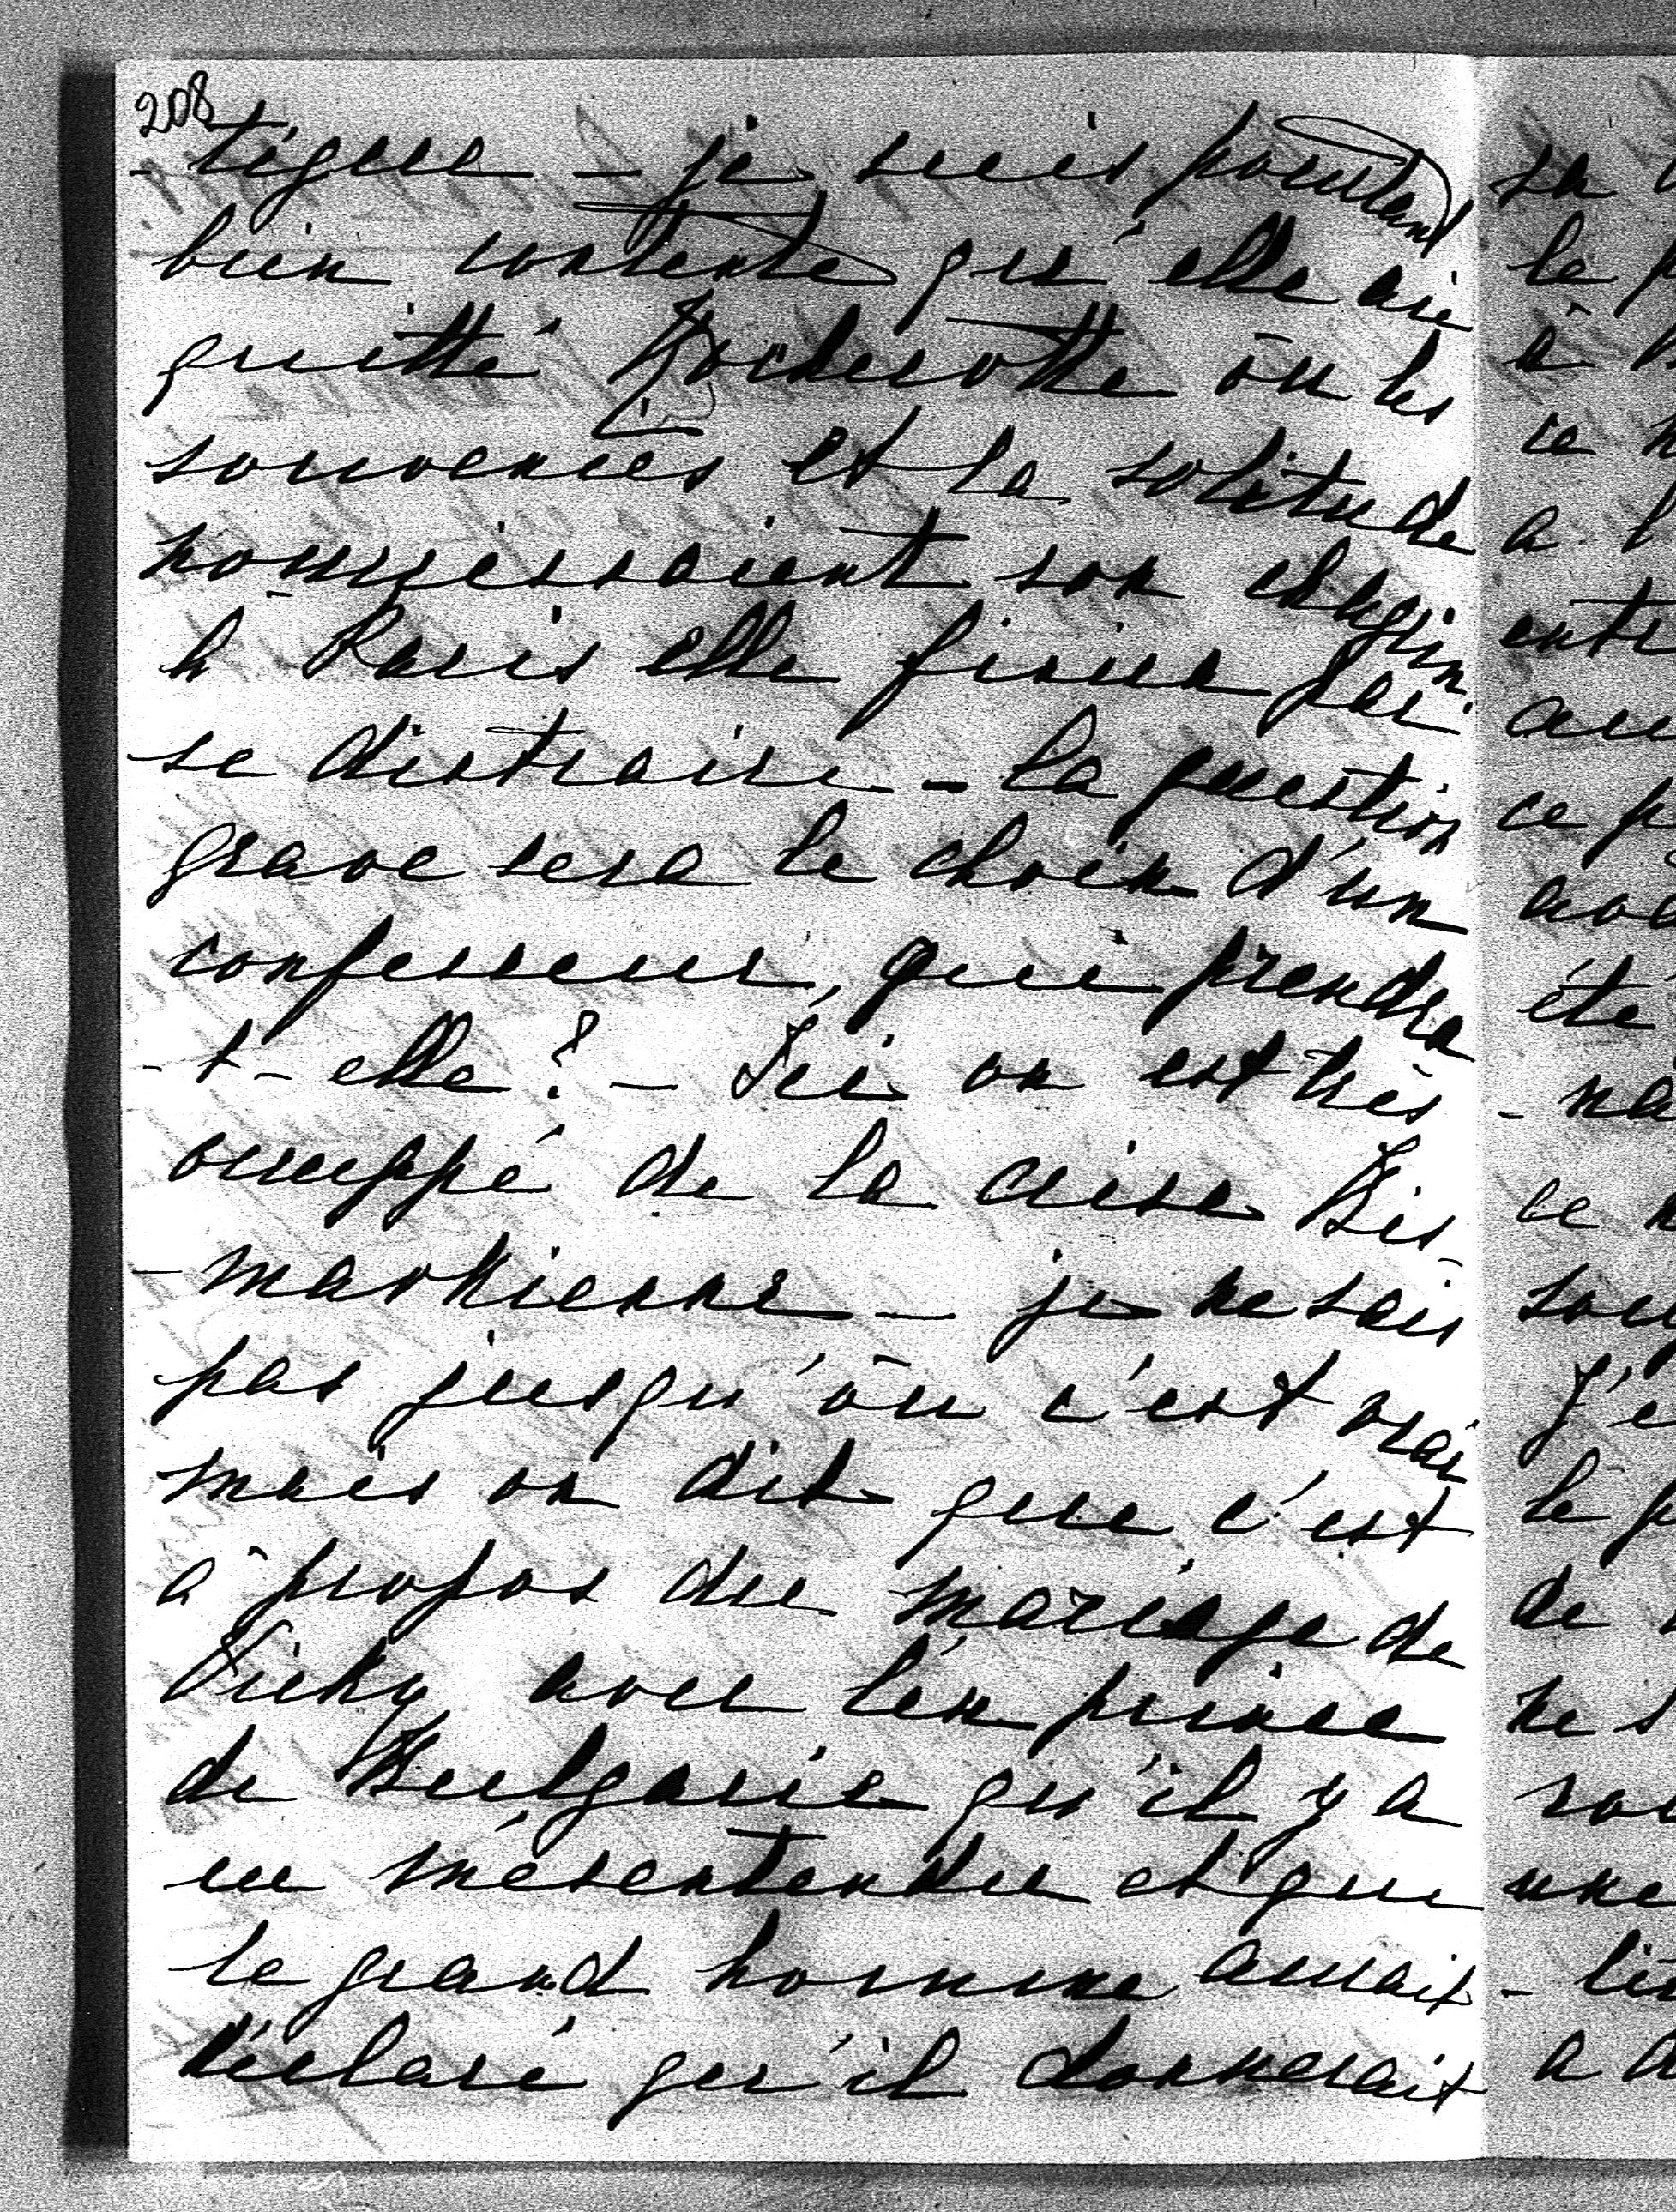 208
-tigue - je suis pourtant
bien contente qu'elle aie
quitté où les
souvenirs et la solitude
nourrissaient son chagrin.
à Paris elle finira par
se distraire - la question
grave sera le choix d'un
confesseur, qui prendra
-t-elle? - Ici on est très
occuppé de la crise Bis-
-markienne - je ne sais
pas jusqu'où c'est vrai
mais on dit que c'est
à propos du mariage de
Vicky avec l'ex prince
de Bulgarie qu'il y a
eu mésentendu et que
le grand homme aurait
déclaré qu'il donnerait